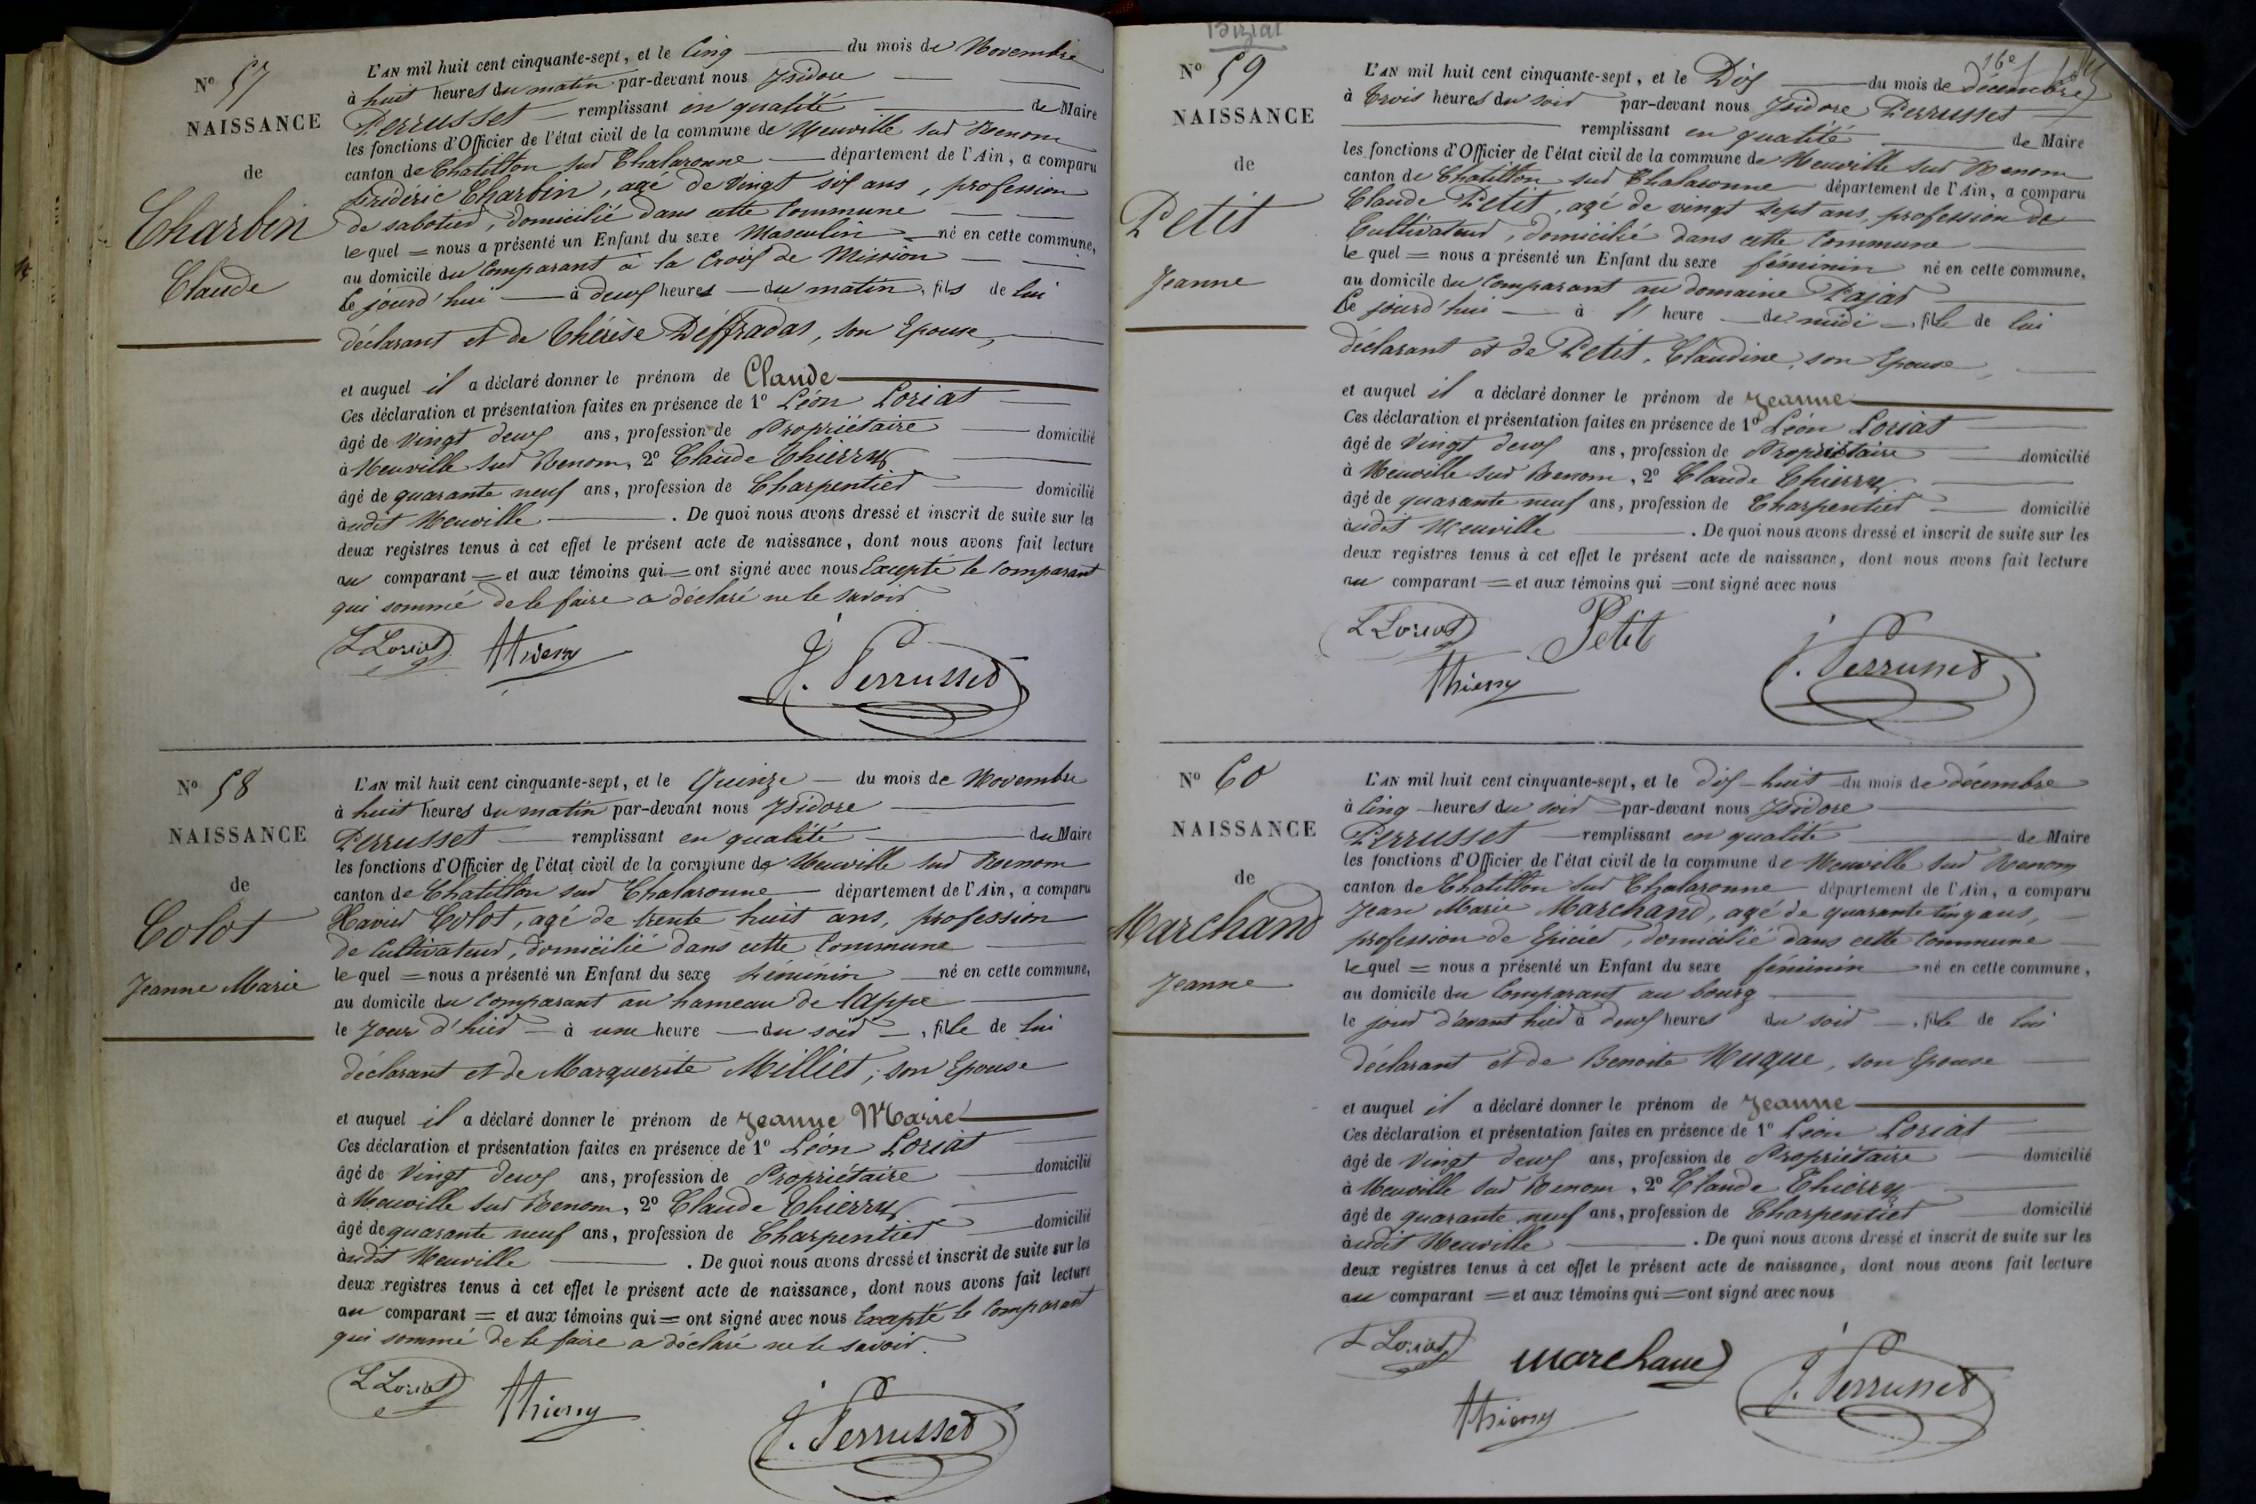 No 57
NAISSANCE
de
Charbin
Claude
L'AN mil huit cent cinquante-sept, et le Cinq du mois de Novembre
à huit heures du matin par-devant nous Isidore
Perrusset remplissant en qualité de Maire
les fonctions d'Officier de l'état civil de la commune de Neuville sur Renom
canton de Chatillon sur Chalaronne département de l'Ain, a comparu
Frédéric Charbin, agé de vingt six ans, profession
de sabotier, domicilié dans cette Commune
le quel = nous a présenté un Enfant du sexe Masculin né en cette commune,
au domicile du Comparant à la Croix de Mission
Ce jourd'hui à deux heures du matin, fils de lui
déclarant et de Thérèse Déffradas, son Epouse,
et auquel il a déclaré donner le prénom de Claude
Ces déclaration et présentation faites en présence de 1o Léon Loriat
âgé de Vingt deux ans, profession de Propriétaire domicilié
à Neuville sur Renom, 2o Claude Thierry
âgé de quarante neuf ans, profession de Charpentier domicilié
audit Neuville . De quoi nous avons dressé et inscrit de suite sur les
deux registres tenus à cet effet le présent acte de naissance, dont nous avons fait lecture
au comparant = et aux témoins qui = ont signé avec nous Excepté le Comparant
qui sommé de le faire a déclaré ne le savoir
L Loriat Thierry J. Perrusset
No 58
NAISSANCE
de
Colot
Jeanne Marie
L'AN mil huit cent cinquante-sept, et le Quinze du mois de Novembre
à huit heures du matin par-devant nous Isidore
Perrusset remplissant en qualité du Maire
les fonctions d'Officier de l'état civil de la commune de Neuville sur Renom
canton de Chatillon sur Chalaronne département de l'Ain, a comparu
Xavier Colot, agé de trente huit ans, profession
de Cultivateur, domicilié dans cette Commune
le quel = nous a présenté un Enfant du sexe Féminin né en cette commune,
au domicile du Comparant au hameau de Lappe
le Jour d'hier à une heure du soir, fille de lui
déclarant et de Marguerite Milliet, son Epouse
et auquel il a déclaré donner le prénom de Jeanne Marie
Ces déclaration et présentation faites en présence de 1o Léon Loriat
âgé de Vingt deux ans, profession de Propriétaire domicilié
à Neuville sur Renom, 2o Claude Thierry
âgé de quarante neuf ans, profession de Charpentier domicilié
audit Neuville . De quoi nous avons dressé et inscrit de suite sur les
deux registres tenus à cet effet le présent acte de naissance, dont nous avons fait lecture
au comparant = et aux témoins qui = ont signé avec nous Excepté le Comparant
qui sommé de le faire a déclaré ne le savoir.
L Loriat Thierry J. Perrusset
Biziat
16e
No 59
NAISSANCE
de
Petit
Jeanne
L'AN mil huit cent cinquante-sept, et le Dix du mois de décembre
à trois heures du soir par-devant nous Isidore Perrusset
remplissant en qualité de Maire
les fonctions d'Officier de l'état civil de la commune de Neuville sur Renom
canton de Chatillon sur Chalaronne département de l'Ain, a comparu
Claude Petit, agé de vingt sept ans, profession de
Cultivateur, domicilié dans cette Commune
le quel = nous a présenté un Enfant du sexe féminin né en cette commune,
au domicile du Comparant au domaine Pajat
Ce jourd'hui à heure de midi, fille de lui
déclarant et de Petit, Claudine, son Epouse,
et auquel il a déclaré donner le prénom de Jeanne
Ces déclaration et présentation faites en présence de 1o Léon Loriat
âgé de Vingt deux ans, profession de Propriétaire domicilié
à Neuville sur Renom, 2o Claude Thierry
âgé de quarante neuf ans, profession de Charpentier domicilié
audit Neuville . De quoi nous avons dressé et inscrit de suite sur les
deux registres tenus à cet effet le présent acte de naissance, dont nous avons fait lecture
au comparant = et aux témoins qui = ont signé avec nous
L Loriat Petit J. Perrusset
Thierry
No 60
NAISSANCE
de
Marchand
Jeanne
L'AN mil huit cent cinquante-sept, et le dix-huit du mois de décembre
à Cinq heures du soir par-devant nous Isidore
Perrusset remplissant en qualité de Maire
les fonctions d'Officier de l'état civil de la commune de Neuville sur Renom
canton de Chatillon sur Chalaronne département de l'Ain, a comparu
Jean Marie Marchand, agé de quarante cinq ans,
profession de Epicier, domicilié dans cette Commune
le quel = nous a présenté un Enfant du sexe féminin né en cette commune,
au domicile du Comparant au bourg
le jour d'avant hier à deux heures du soir, fille de lui
déclarant et de Benoite Nuque, son Epouse
et auquel il a déclaré donner le prénom de Jeanne
Ces déclaration et présentation faites en présence de 1o Léon Loriat
âgé de Vingt deux ans, profession de Propriétaire domicilié
à Neuville sur Renom, 2o Claude Thierry
âgé de quarante neuf ans, profession de Charpentier domicilié
audit Neuville . De quoi nous avons dressé et inscrit de suite sur les
deux registres tenus à cet effet le présent acte de naissance, dont nous avons fait lecture
au comparant = et aux témoins qui = ont signé avec nous
L Loriat Marchand J. Perrusset
Thierry